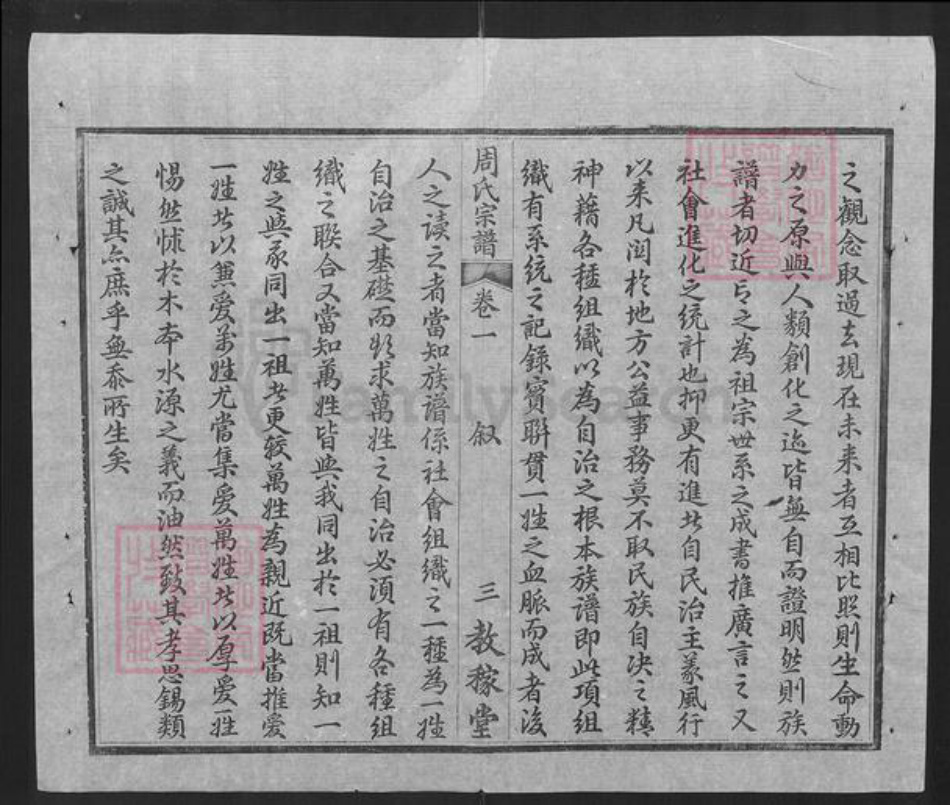 之觀念取過去現在未来者互相比照則生命動
力之原與人類創化之迹皆無自而證明然則族
譜者切近言之為祖宗世系之成書推廣言之又
社會進化之統計也抑更有進者自民治主義風行
以来凡関於地方公益事務莫不取民族自决之精
神藉各種組織以為自治之根本族譜即此項組
織有系統之記録實聯貫一姓之血脈而成者後
周氏宗譜 卷一 叙 三 教稼堂
人之读之者當知族譜係社會組織之一種為一姓
自治之基礎而欲求萬姓之自治必須有各種組
織之聯合又當知萬姓皆與我同出於一祖則知一
姓之與我同出一祖者更較萬姓為親近既當推愛
一姓者以兼爱萬姓尤當集爱萬姓者以厚爱一姓
惕然怵於木本水源之義而油然致其孝思錫類
之誠其亦庶乎無忝所生矣
FamilySearch